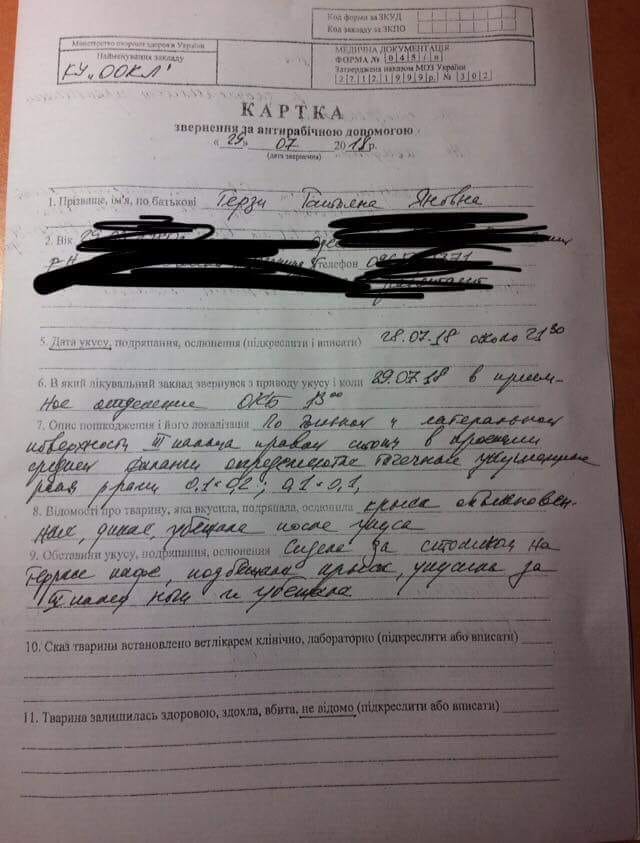 Код форми за ЗКУД
Код закладу за ЗКПО
Міністерство охорони здоров'я України
Найменування закладу
КУ „ООКЛ"
МЕДИЧНА ДОКУМЕНТАЦІЯ
ФОРМА № 045/о
Затверджена наказом МОЗ України
27121999р. № 302
КАРТКА
звернення за антирабічною допомогою
« 29 » 07 2018 р.
(дата звернення)
1. Прізвище, ім'я, по батькові Терзи Татьяна Яновна
2. Вік
р-н Телефон
5. Дата укусу, подряпання, ослюнення (підкреслити і вписати) 28.07.18 около 21 30
6. В який лікувальний заклад звернувся з приводу укусу і коли 29.07.18 в прием-
ное отделение ОКБ 13 00
7. Опис пошкодження і його локалізація По и латеральной
поверхности III пальца правой стопы в проекции
средней фаланги определяются точечные
раны 0,1×0,2; 0,1×0,1,
8. Відомості про тварину, яка вкусила, подряпала, ослюнила крыса обыкновен-
ная, дикая, убежала после укуса
9. Обставини укусу, подряпання, ослюнення Сидела за столиком на
террасе кафе, подбежала крыса, укусила за
III палец ноги и убежала
10. Сказ тварини встановлено ветлікарем клінічно, лабораторно (підкреслити або вписати)
11. Тварина залишилась здоровою, здохла, вбита, не відомо (підкреслити або вписати)